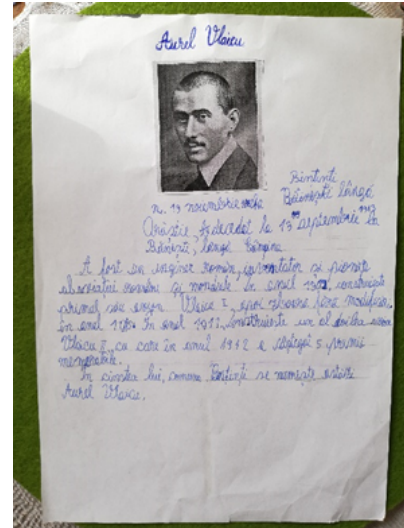 Aurel Vlaicu
Binținți
n. 19 noiembrie lângă
Orăștie, decedat la 13 septembrie 1913 la
Bănești, lângă Câmpina
A fost un inginer român, inventator și pionier
al aviației române și mondiale în anul construiește
primul său avion Vlaicu I, zboară fără modificări
în anul În anul 1911, construiește un al doilea avion
Vlaicu II, cu care în anul 1912 a câștigat 5 premii
memorabile.
În cinstea lui, comuna Binținți se numește astăzi
Aurel Vlaicu.